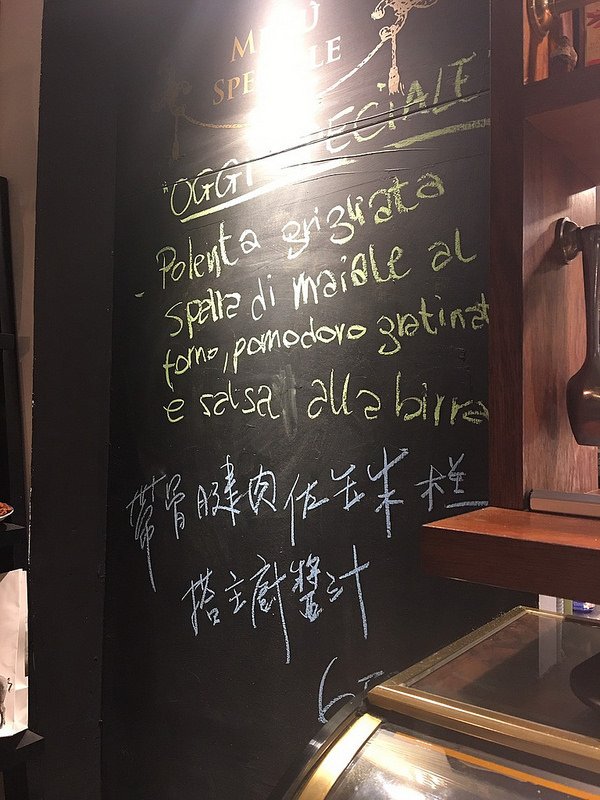 MENÙ
SPECIALE
"OGGI SPECIALE"
- Polenta grigliata
spalla di maiale al
forno, pomodoro gratinat
e salsa alla birra
帶骨腱肉佐玉米
搭主廚醬汁